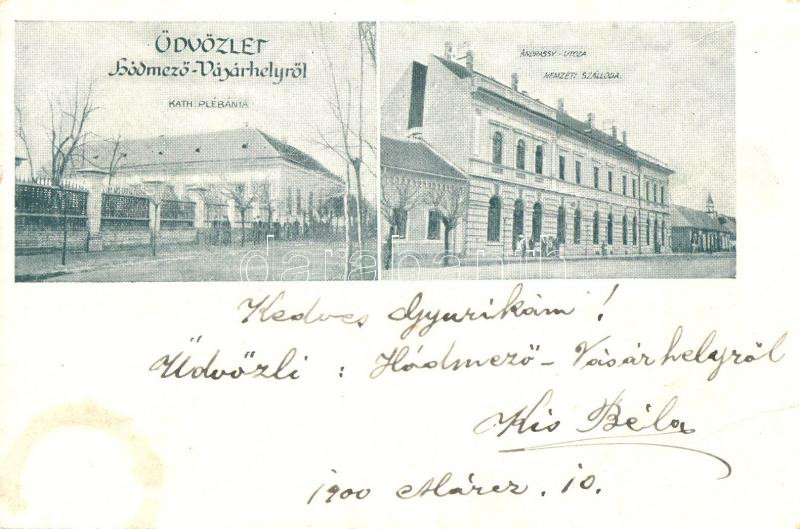 ÜDVÖZLET
Hódmező-Vásárhelyről
KATH. PLÉBÁNIA
ANDRÁSSY-UTCZA
NEMZETI SZÁLLODA.
darabanth
Kedves Gyurikám!
Üdvözli: Hódmező-Vásárhelyről
Kis Béla
1900 Márcz. 10.